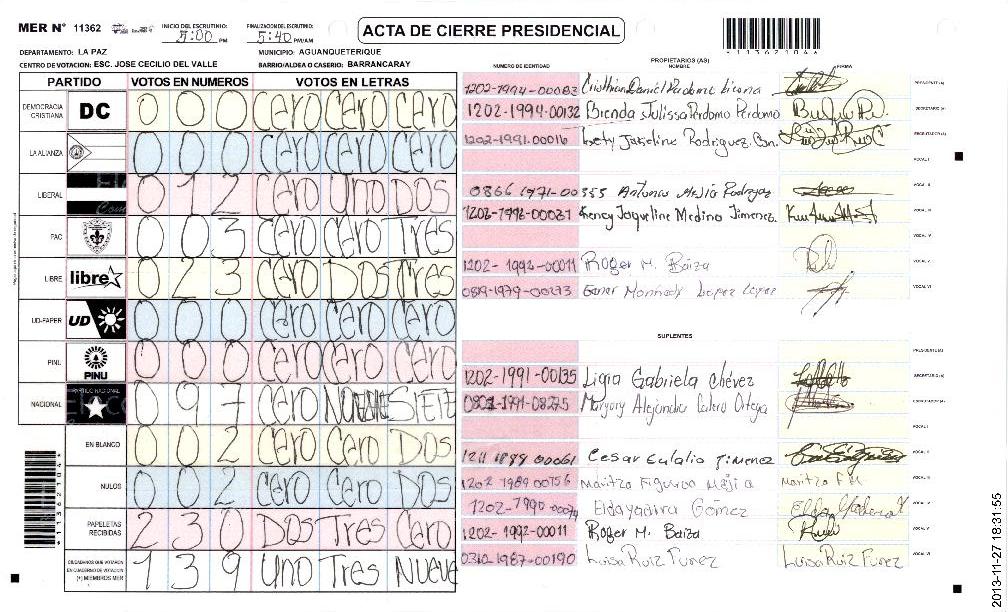 MER N° 11362 INICIO DEL ESCRUTINIO: 5:00 PM FINALIZACION DEL ESCRUTINIO: 5:40 PM/AM ACTA DE CIERRE PRESIDENCIAL
*1136210 4*
DEPARTAMENTO: LA PAZ MUNICIPIO: AGUANQUETERIQUE
CENTRO DE VOTACION: ESC. JOSE CECILIO DEL VALLE BARRIO/ALDEA O CASERIO: BARRANCARAY
PARTIDO VOTOS EN NUMEROS VOTOS EN LETRAS
DEMOCRACIA CRISTIANA DC 0 0 0 Cero Cero Cero
LA ALIANZA 0 0 0 Cero Cero Cero
LIBERAL 0 1 2 Cero Uno Dos
PAC 0 0 3 Cero Cero Tres
LIBRE libre 0 2 3 Cero Dos Tres
UD-FAPER UD 0 0 0 Cero Cero Cero
PINU PINU 0 0 0 Cero Cero Cero
NACIONAL 0 9 7 Cero Nueve SIETE
EN BLANCO 0 0 2 Cero Cero Dos
NULOS 0 0 2 Cero Cero Dos
PAPELETAS RECIBIDAS 2 3 0 Dos Tres Cero
CIUDADANOS QUE VOTARON EN CUADERNO DE VOTACION (+) MIEMBROS MER 1 3 9 Uno Tres Nueve
PROPIETARIOS (AS)
NUMERO DE IDENTIDAD NOMBRE FIRMA
1202-1994-00083 Cristhian Daniel Perdomo PRESIDENTE (A)
1202-1994-00132 Brenda Julissa Perdomo Perdomo SECRETARIO (A)
1202-1991-00016 Lety Jakeline Rodriguez ESCRUTADOR (A)
VOCAL I
1971-00355 Antonio Mejia Rodryez VOCAL II
Kency Jaqueline Medina Jimenez VOCAL III
VOCAL IV
1202-1992-00011 Roger M. Baiza VOCAL V
0819-1979-00273 Lopez Lopez VOCAL VI
SUPLENTES
PRESIDENTE (A)
1202-1991-00135 Ligia Gabriela Chévez SECRETARIO (A)
Margory Alejandra Calero Ortega ESCRUTADOR (A)
VOCAL I
00061 Cesar Eulalio Jimenez VOCAL II
1202 1989 00756 Maritza Figueroa Mejia Maritza F M VOCAL III
Elda Yadira Gómez VOCAL IV
1202-1992-00011 Roger M. Baiza VOCAL V
0312-1987-00190 Luisa Ruiz Funez Luisa Ruiz Funez VOCAL VI
2013-11-27 18:31:55